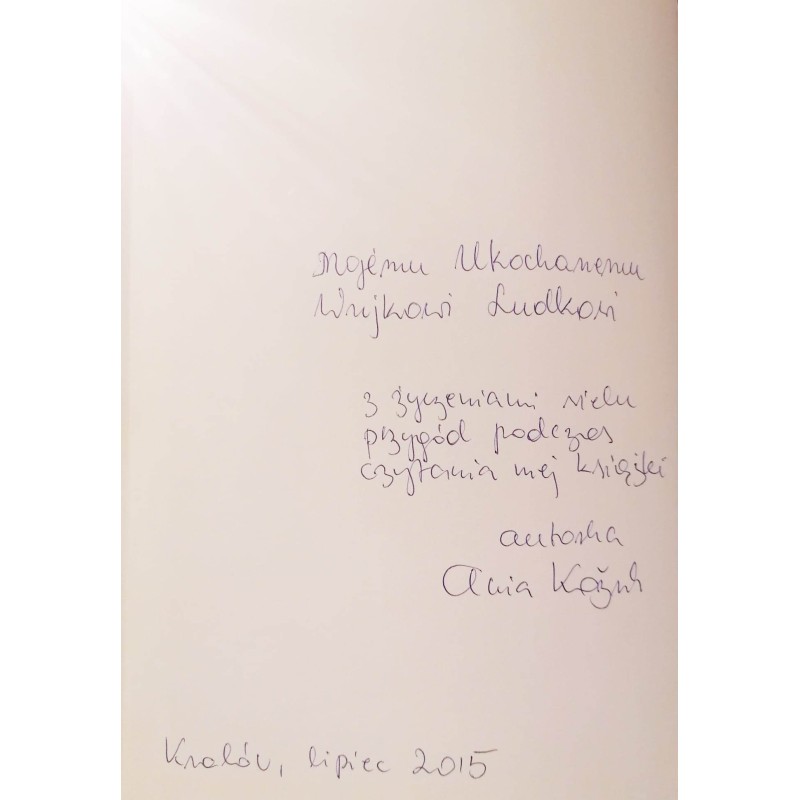 Mojemu Ukochanemu
Wujkowi Ludkowi
z życzeniami wielu
przygód podczas
czytania mej książki
autorka
Ania Kożuh
Kraków, lipiec 2015